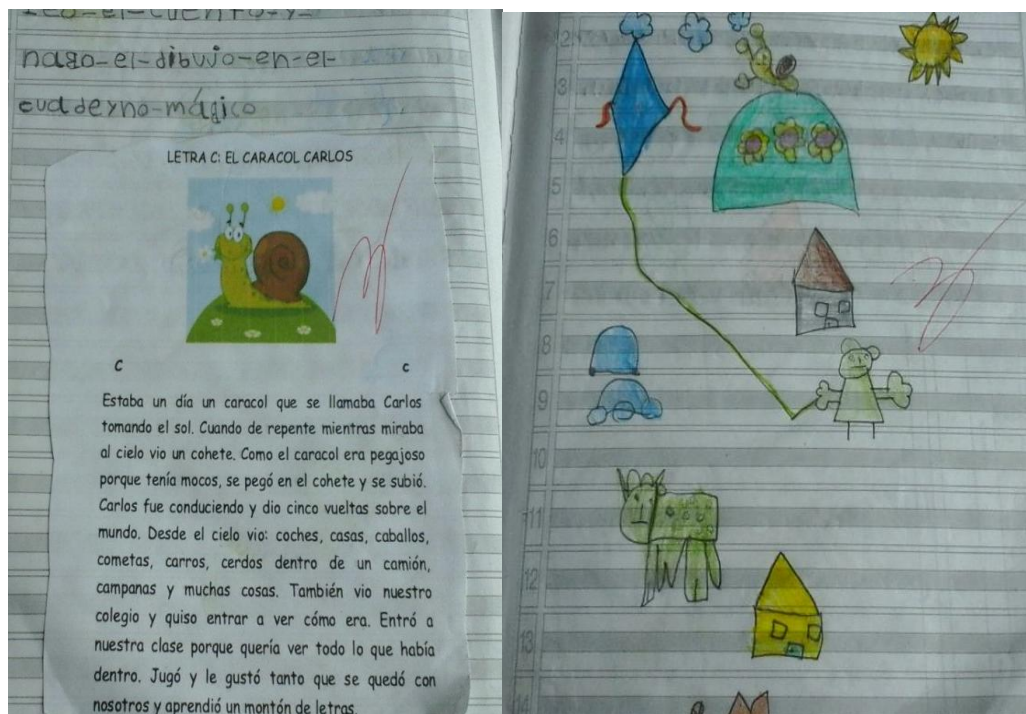 Leo-el-cuento-y-
hago-el-dibujo-en-el-
cuaderno-mágico
LETRA C: EL CARACOL CARLOS
C c
Estaba un día un caracol que se llamaba Carlos
tomando el sol. Cuando de repente mientras miraba
al cielo vio un cohete. Como el caracol era pegajoso
porque tenía mocos, se pegó en el cohete y se subió.
Carlos fue conduciendo y dio cinco vueltas sobre el
mundo. Desde el cielo vio: coches, casas, caballos,
cometas, carros, cerdos dentro de un camión,
campanas y muchas cosas. También vio nuestro
colegio y quiso entrar a ver cómo era. Entró a
nuestra clase porque quería ver todo lo que había
dentro. Jugó y le gustó tanto que se quedó con
nosotros y aprendió un montón de letras.
2
3
4
5
6
7
8
9
10
11
12
13
14